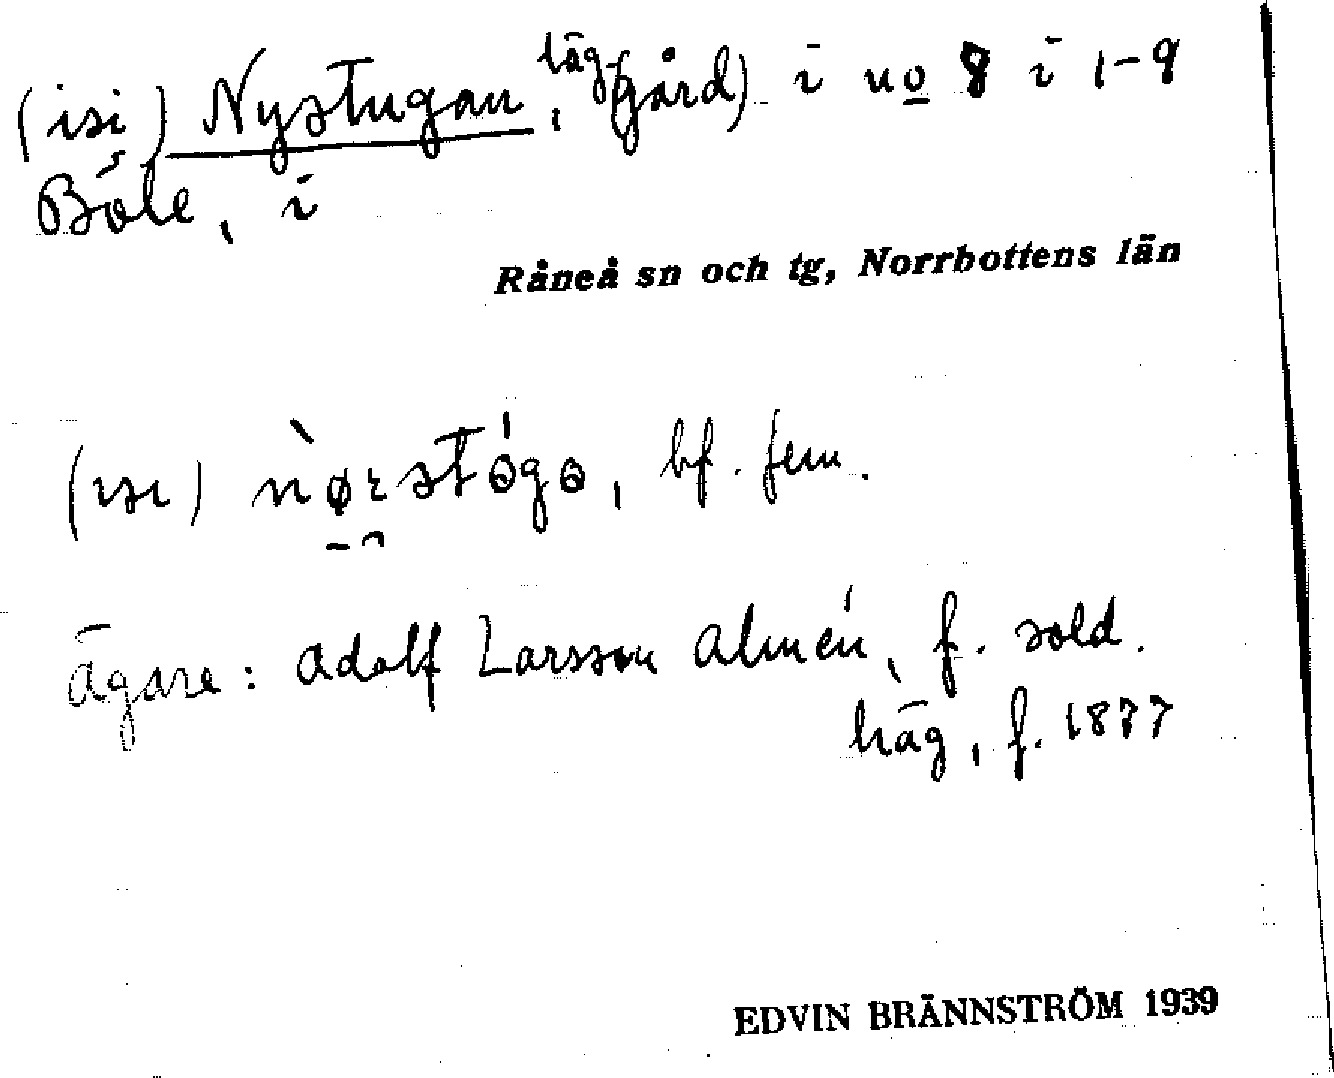 (isi) Nystugan, läg(gård) i no 8 i 1-9
Böle, i
Råneå sn och tg, Norrbottens län
(ısı) bf. fem.
ägare: Adolf Larsson Almén, f. sold.
häg, f. 1877
EDVIN BRÄNNSTRÖM 1939